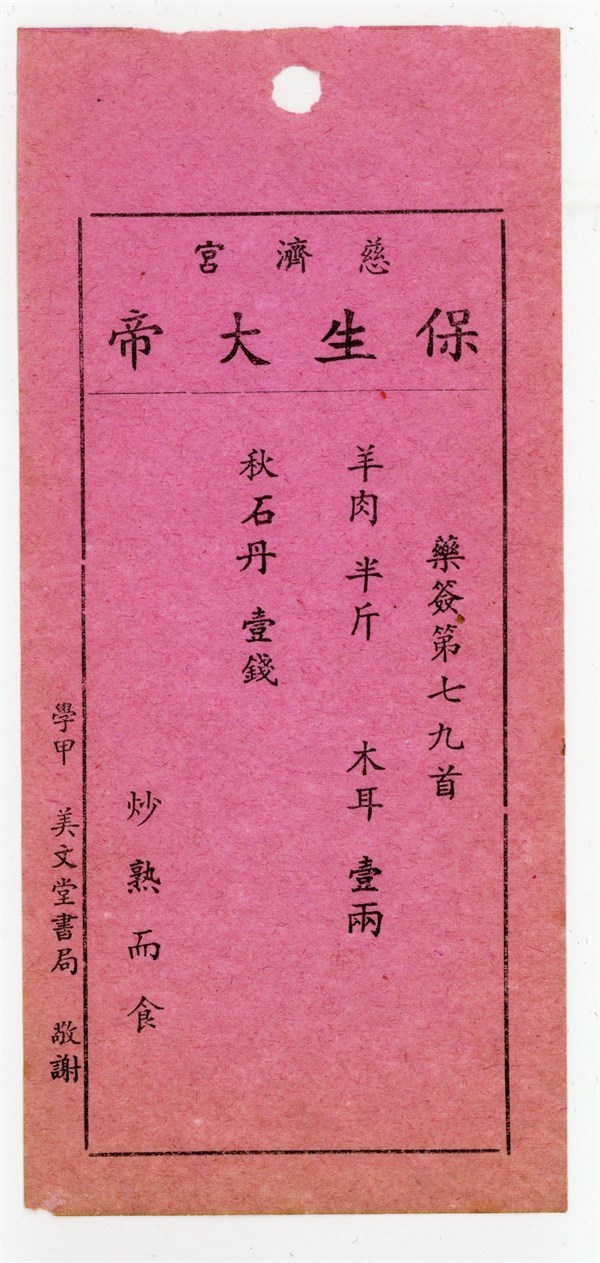 慈濟宮
保生大帝
藥簽第七九首
羊肉 半斤 木耳 壹兩
秋石丹 壹錢
炒熟而食
學甲 美文堂書局 敬謝